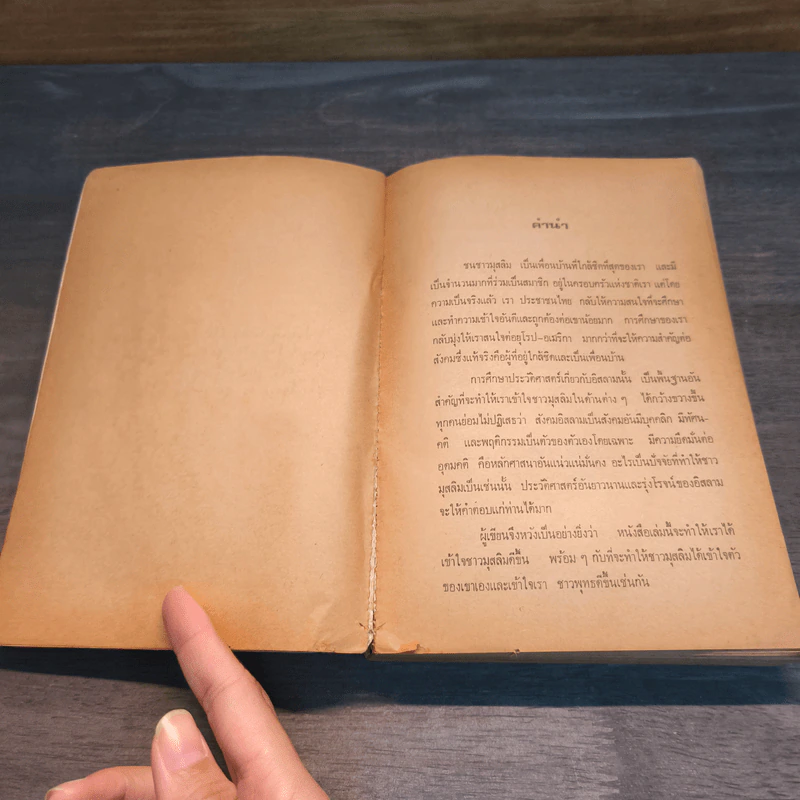 คำนำ
ชนชาวมุสลิม เป็นเพื่อนบ้านที่ใกล้ชิดที่สุดของเรา และมี
เป็นจำนวนมากที่ร่วมเป็นสมาชิก อยู่ในครอบครัวแห่งชาติเรา แต่โดย
ความเป็นจริงแล้ว เรา ประชาชนไทย กลับให้ความสนใจที่จะศึกษา
และทำความเข้าใจอันดีและถูกต้องต่อเขาน้อยมาก การศึกษาของเรา
กลับมุ่งให้เราสนใจต่อยุโรป-อเมริกา มากกว่าที่จะให้ความสำคัญต่อ
สังคมซึ่งแท้จริงคือผู้ที่อยู่ใกล้ชิดและเป็นเพื่อนบ้าน
การศึกษาประวัติศาสตร์เกี่ยวกับอิสลามนั้น เป็นพื้นฐานอัน
สำคัญที่จะทำให้เราเข้าใจชาวมุสลิมในด้านต่าง ๆ ได้กว้างขวางขึ้น
ทุกคนย่อมไม่ปฏิเสธว่า สังคมอิสลามเป็นสังคมอันมีบุคคลิก มีทัศน-
คติ และพฤติกรรมเป็นตัวของตัวเองโดยเฉพาะ มีความยึดมั่นต่อ
อุดมคติ คือหลักศาสนาอันแน่วแน่มั่นคง อะไรเป็นปัจจัยที่ทำให้ชาว
มุสลิมเป็นเช่นนั้น ประวัติศาสตร์อันยาวนานและรุ่งโรจน์ของอิสลาม
จะให้คำตอบแก่ท่านได้มาก
ผู้เขียนจึงหวังเป็นอย่างยิ่งว่า หนังสือเล่มนี้จะทำให้เราได้
เข้าใจชาวมุสลิมดีขึ้น พร้อม ๆ กับที่จะทำให้ชาวมุสลิมได้เข้าใจตัว
ของเขาเองและเข้าใจเรา ชาวพุทธดีขึ้นเช่นกัน